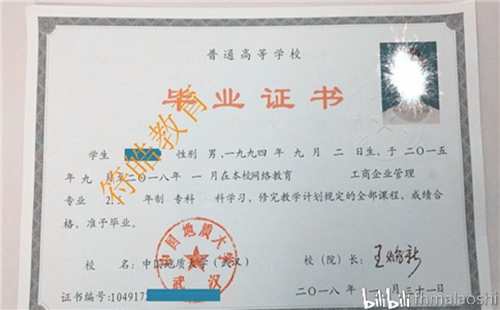 普通高等学校
毕业证书
学生 性别 男,一九九四年 九 月 二 日生,于二〇一五
年 九 月至二〇一八年 一 月在本校网络教育 工商企业管理
专业 2. 年制 专科 科学习,修完教学计划规定的全部课程,成绩合
格,准予毕业。
校 名:中国地质大学(武汉) 校(院)长:
证书编号:10491 二〇一八年一月三十一日
中国地质大学
武汉
符皓教育
bilibili fhmalaoshi